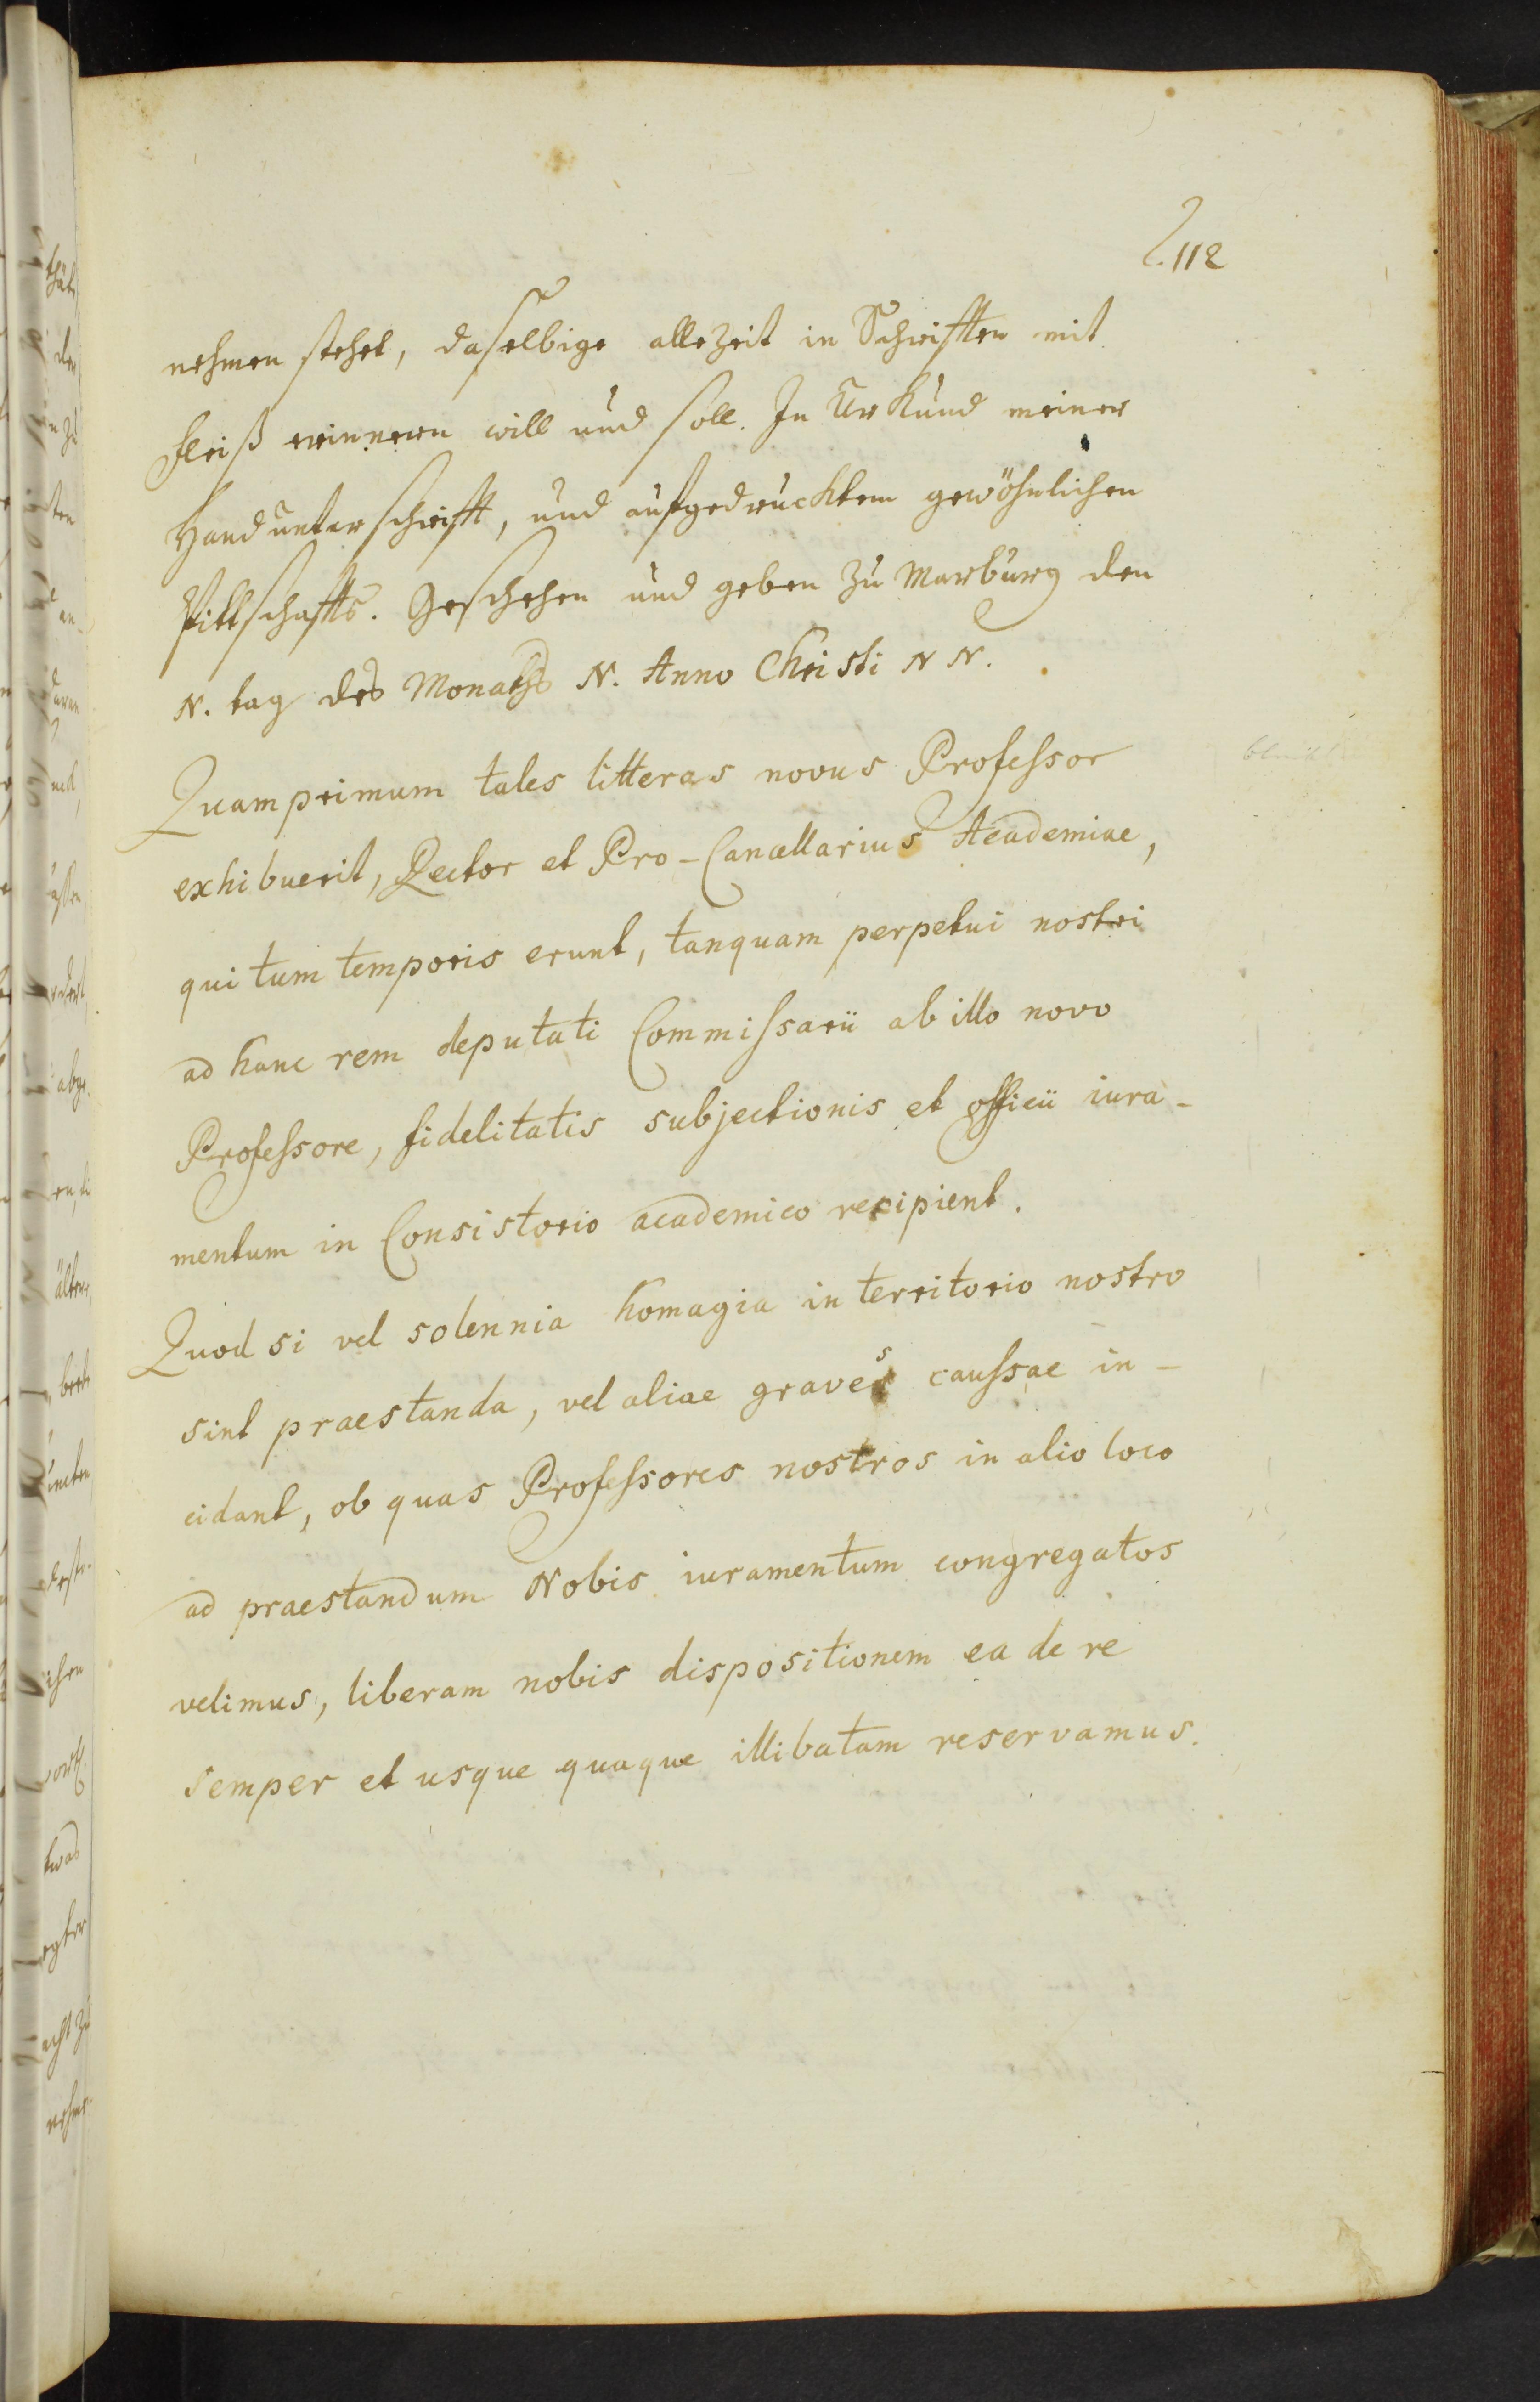 112
nehmen stehet, daselbige allezeit in Schrifften mit
fleiß erinnern will und soll. In Urkund meiner
Handunterschrifft, und aufgedrucktem gewöhnlichen
Pittschaffts. Geschehen und geben zu Marburg den
N. tag des Monaths N. Anno Christi N N.
Quamprimum tales litteras novus Professor
exhibuerit, Rector et Pro-Cancellarius Academiae,
qui tum temporis erunt, tanquam perpetui nostri
ad hanc rem deputati Commissarii ab illo novo
Professore, fidelitatis subjectionis et officii iura-
mentum in Consistorio academico recipient.
Quod si vel solennia homagia in territorio nostro
sint praestanda, vel aliae graves caussae in-
cidant, ob quas Professores nostros in alio loco
ad praestandum Nobis iuramentum congregatos
velimus, liberam nobis dispositionem ea de re
semper et usque quaque illibatam reservamus.